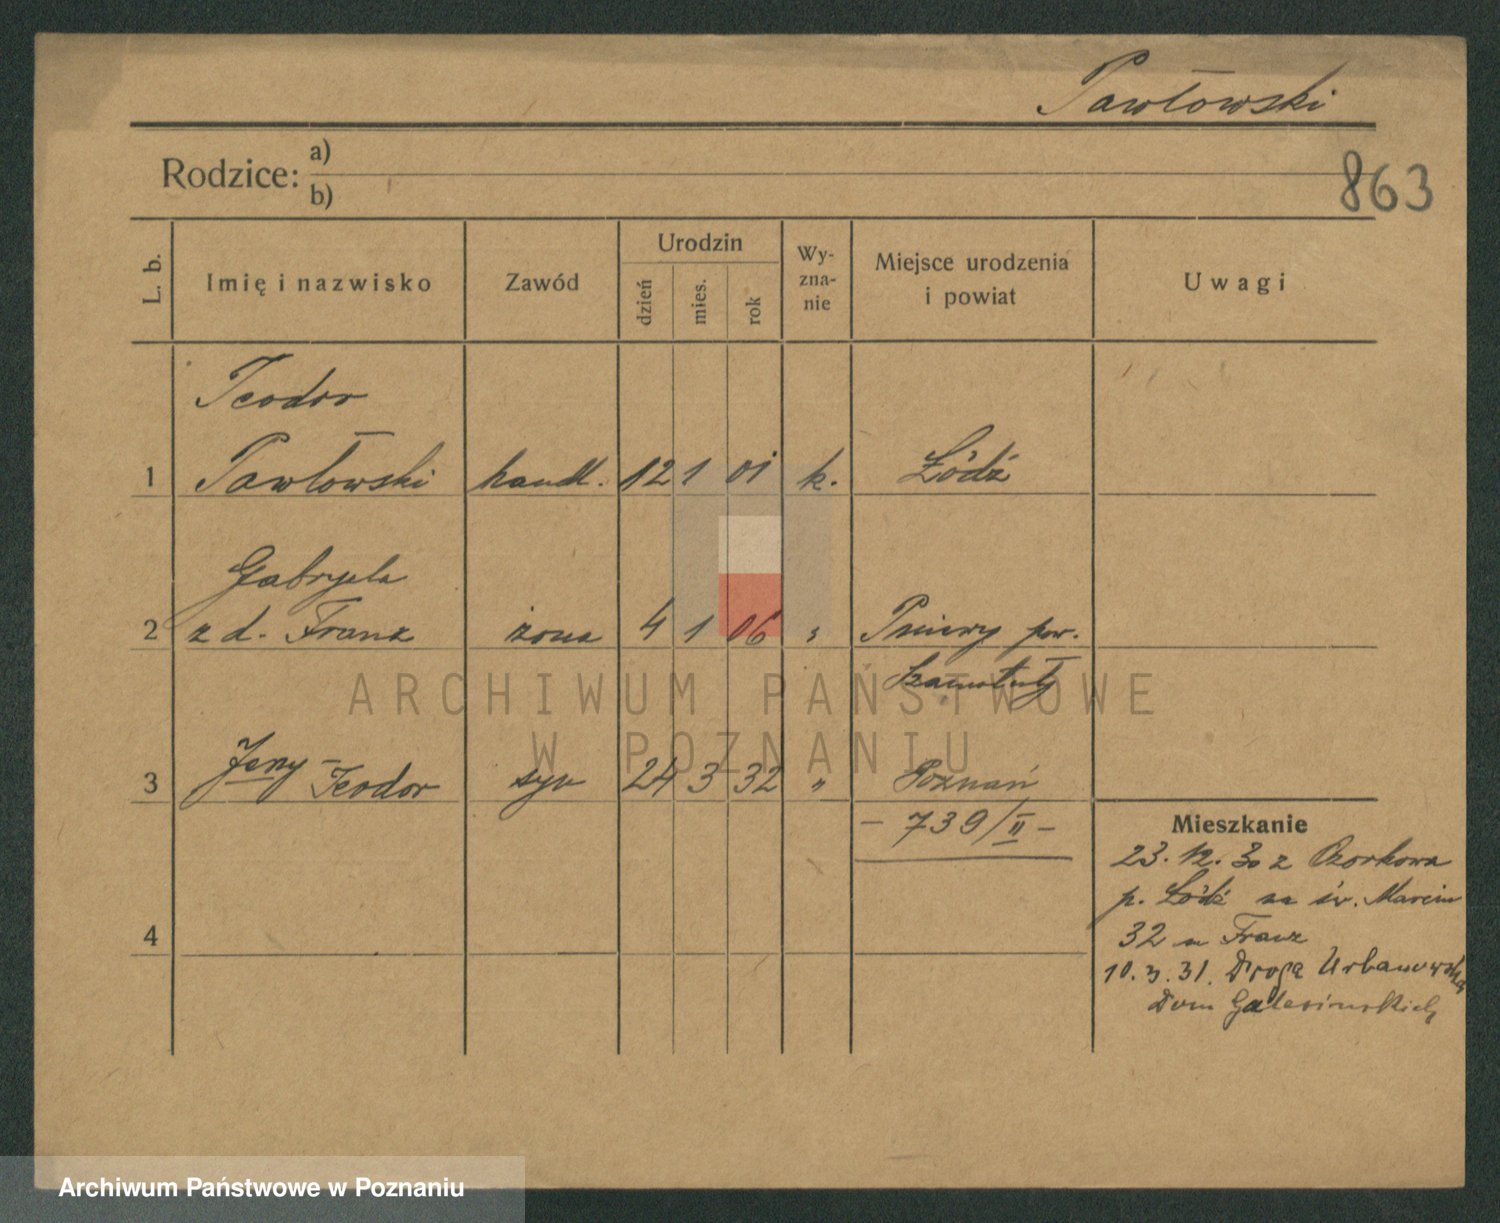 Pawłowski
863
Rodzice: a)
b)
L. b.
Imię i nazwisko
Zawód
Urodzin
dzień
mies.
rok
Wy-
zna-
nie
Miejsce urodzenia
i powiat
Uwagi
Teodor
1 Pawłowski handl. 12 1 01 k. Łódź
Gabryela
2 z d. Franz żona 4 1 06 " Pniewy pow.
Szamotuły
3 Jerzy-Teodor syn 24 3 32 " Poznań
- 739/II -
4
Mieszkanie
23.12.30 z Ozorkowa
p. Łódź na św. Marcin
32 u Franz
10.3.31. Droga Urbanowska
Dom
ARCHIWUM PAŃSTWOWE
W POZNANIU
Archiwum Państwowe w Poznaniu